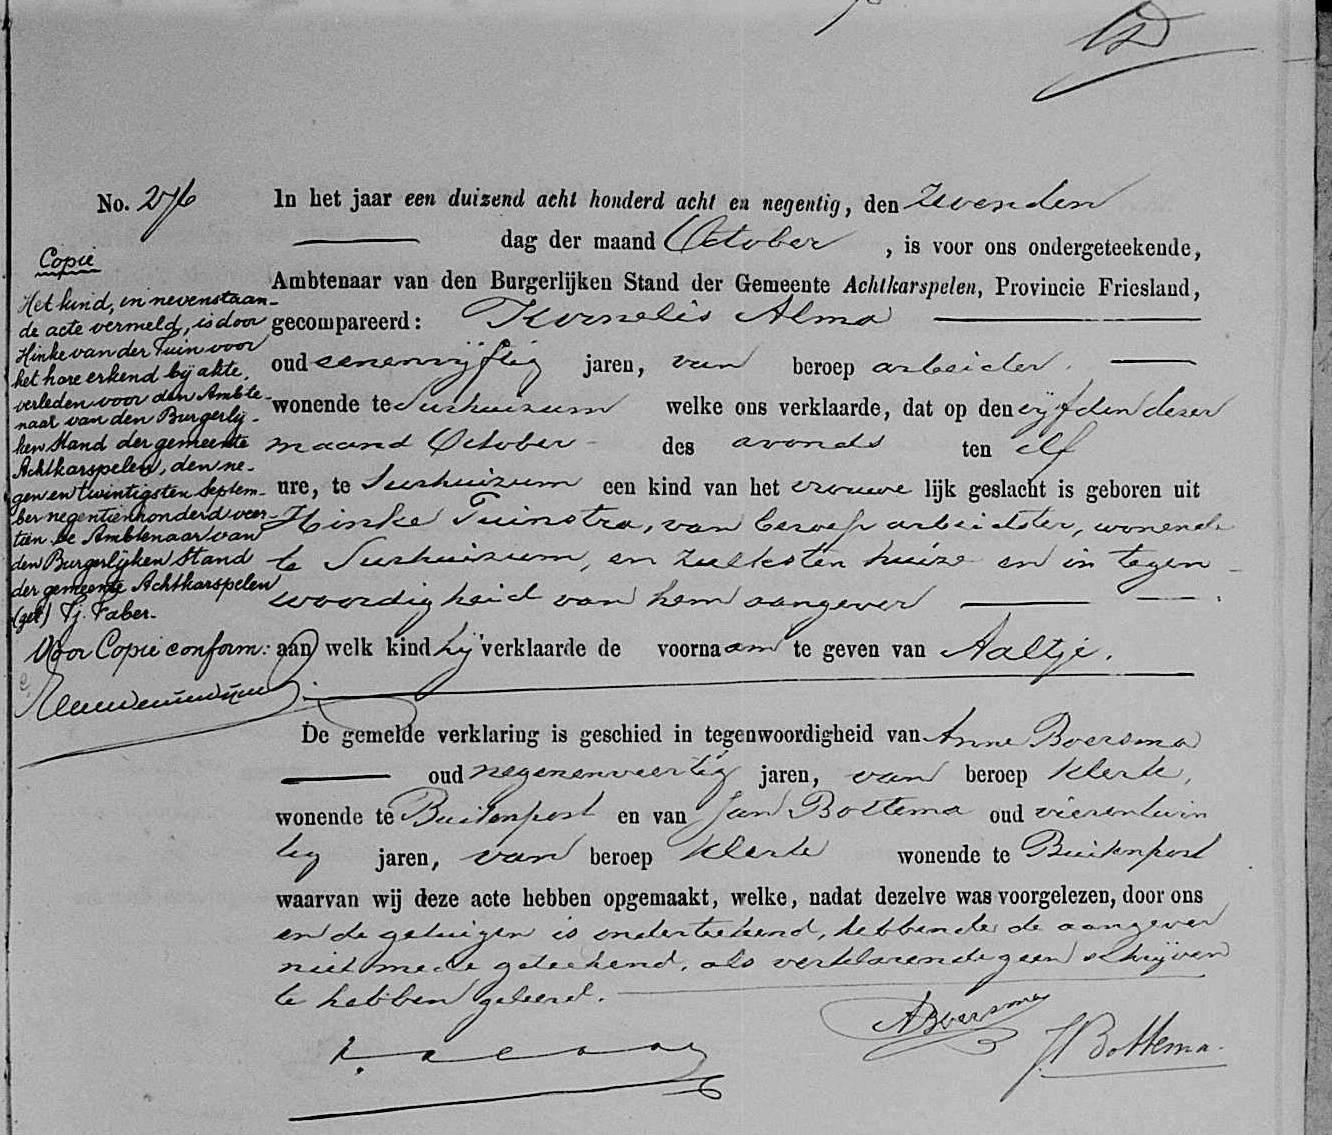 No. 276
In het jaar een duizend acht honderd acht en negentig, den zevenden
dag der maand October, is voor ons ondergeteekende,
Ambtenaar van den Burgerlijken Stand der Gemeente Achtkarspelen, Provincie Friesland,
gecompareerd: Kornelis Alma
oud eenenvijftig jaren, van beroep arbeider.
wonende te Surhuizum welke ons verklaarde, dat op den vijfden dezer
maand October des avonds ten elf
ure, te Surhuizum een kind van het vrouwelijk geslacht is geboren uit
Hinke Tuinstra, van beroep arbeidster, wonende
te Surhuizum, en zulks ten huize en in tegen-
woordigheid van hem aangever
aan welk kind hij verklaarde de voornaam te geven van Aaltje.
De gemelde verklaring is geschied in tegenwoordigheid van Anne Boersma
oud negenenveertig jaren, van beroep klerk,
wonende te Buitenpost en van Jan Bottema oud vierentwin
tig jaren, van beroep klerk wonende te Buitenpost
waarvan wij deze acte hebben opgemaakt, welke, nadat dezelve was voorgelezen, door ons
en de getuigen is onderteekend, hebbende de aangever
niet mede geteekend, als verklarende geen schrijven
te hebben geleerd.
ABoersma
JBottema.
Copie
Het kind, in nevenstaan-
de acte vermeld, is door
Hinke van der Tuin voor
het hare erkend bij akte,
verleden voor den Ambte-
naar van den Burgerlij-
ken Stand der gemeente
Achtkarspelen, den ne-
gen en twintigsten Septem-
ber negentienhonderd veer-
tien De Ambtenaar van
den Burgerlijken Stand
der gemeente Achtkarspelen
(get) Tj. Faber.
Voor Copie conform: